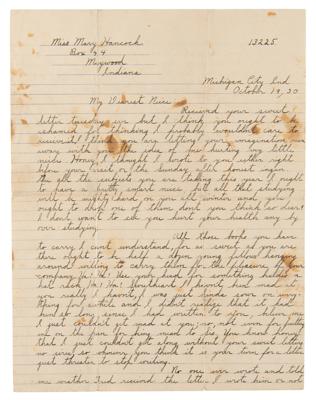 Miss Mary Hancock 13225
Box 44
Maywood
Indiana
Michigan City Ind
October 19, 30
My Dearest Niece
Received your sweet
letter tuesday eve but I think you ought to be
ashamed for thinking I probably wouldn't care to
receive it I think you are letting your imagination run
away with you the idea of me hurting my little
niece. Honey, I thought I wrote to you either right
before your visit or the Sunday after
the all the subjects you are taking this year I ought
to have a pretty smart niece but all that studying
will be mighty hard on you all winter and you
ought to drop one of them don't you think so dear?
I don't want to see you hurt your health any by
over studying.
All those books you have
to carry I can't understand, for as sweet as you are
there ought to be half a dozen young fellows hanging
around willing to carry them for the pleasure of your
company. Ha! Ha! use your head for something besides a
hat rack. Ha! Ha! Sweetheart I haven't been mad at
you really I haven't, I was just kinda sore on
for awhile and I didn't realize that it had
been so long since I had written to you, believe me
I just couldn't get mad at you, no, not even for putting
me on the pan for being mad at you You know honey
that I just couldn't get along without your sweet letters
no siree, so whenever you think it is your turn for a letter
just threaten to stop writing.
No one ever wrote and told
me wether Fred received the letter I wrote him or not